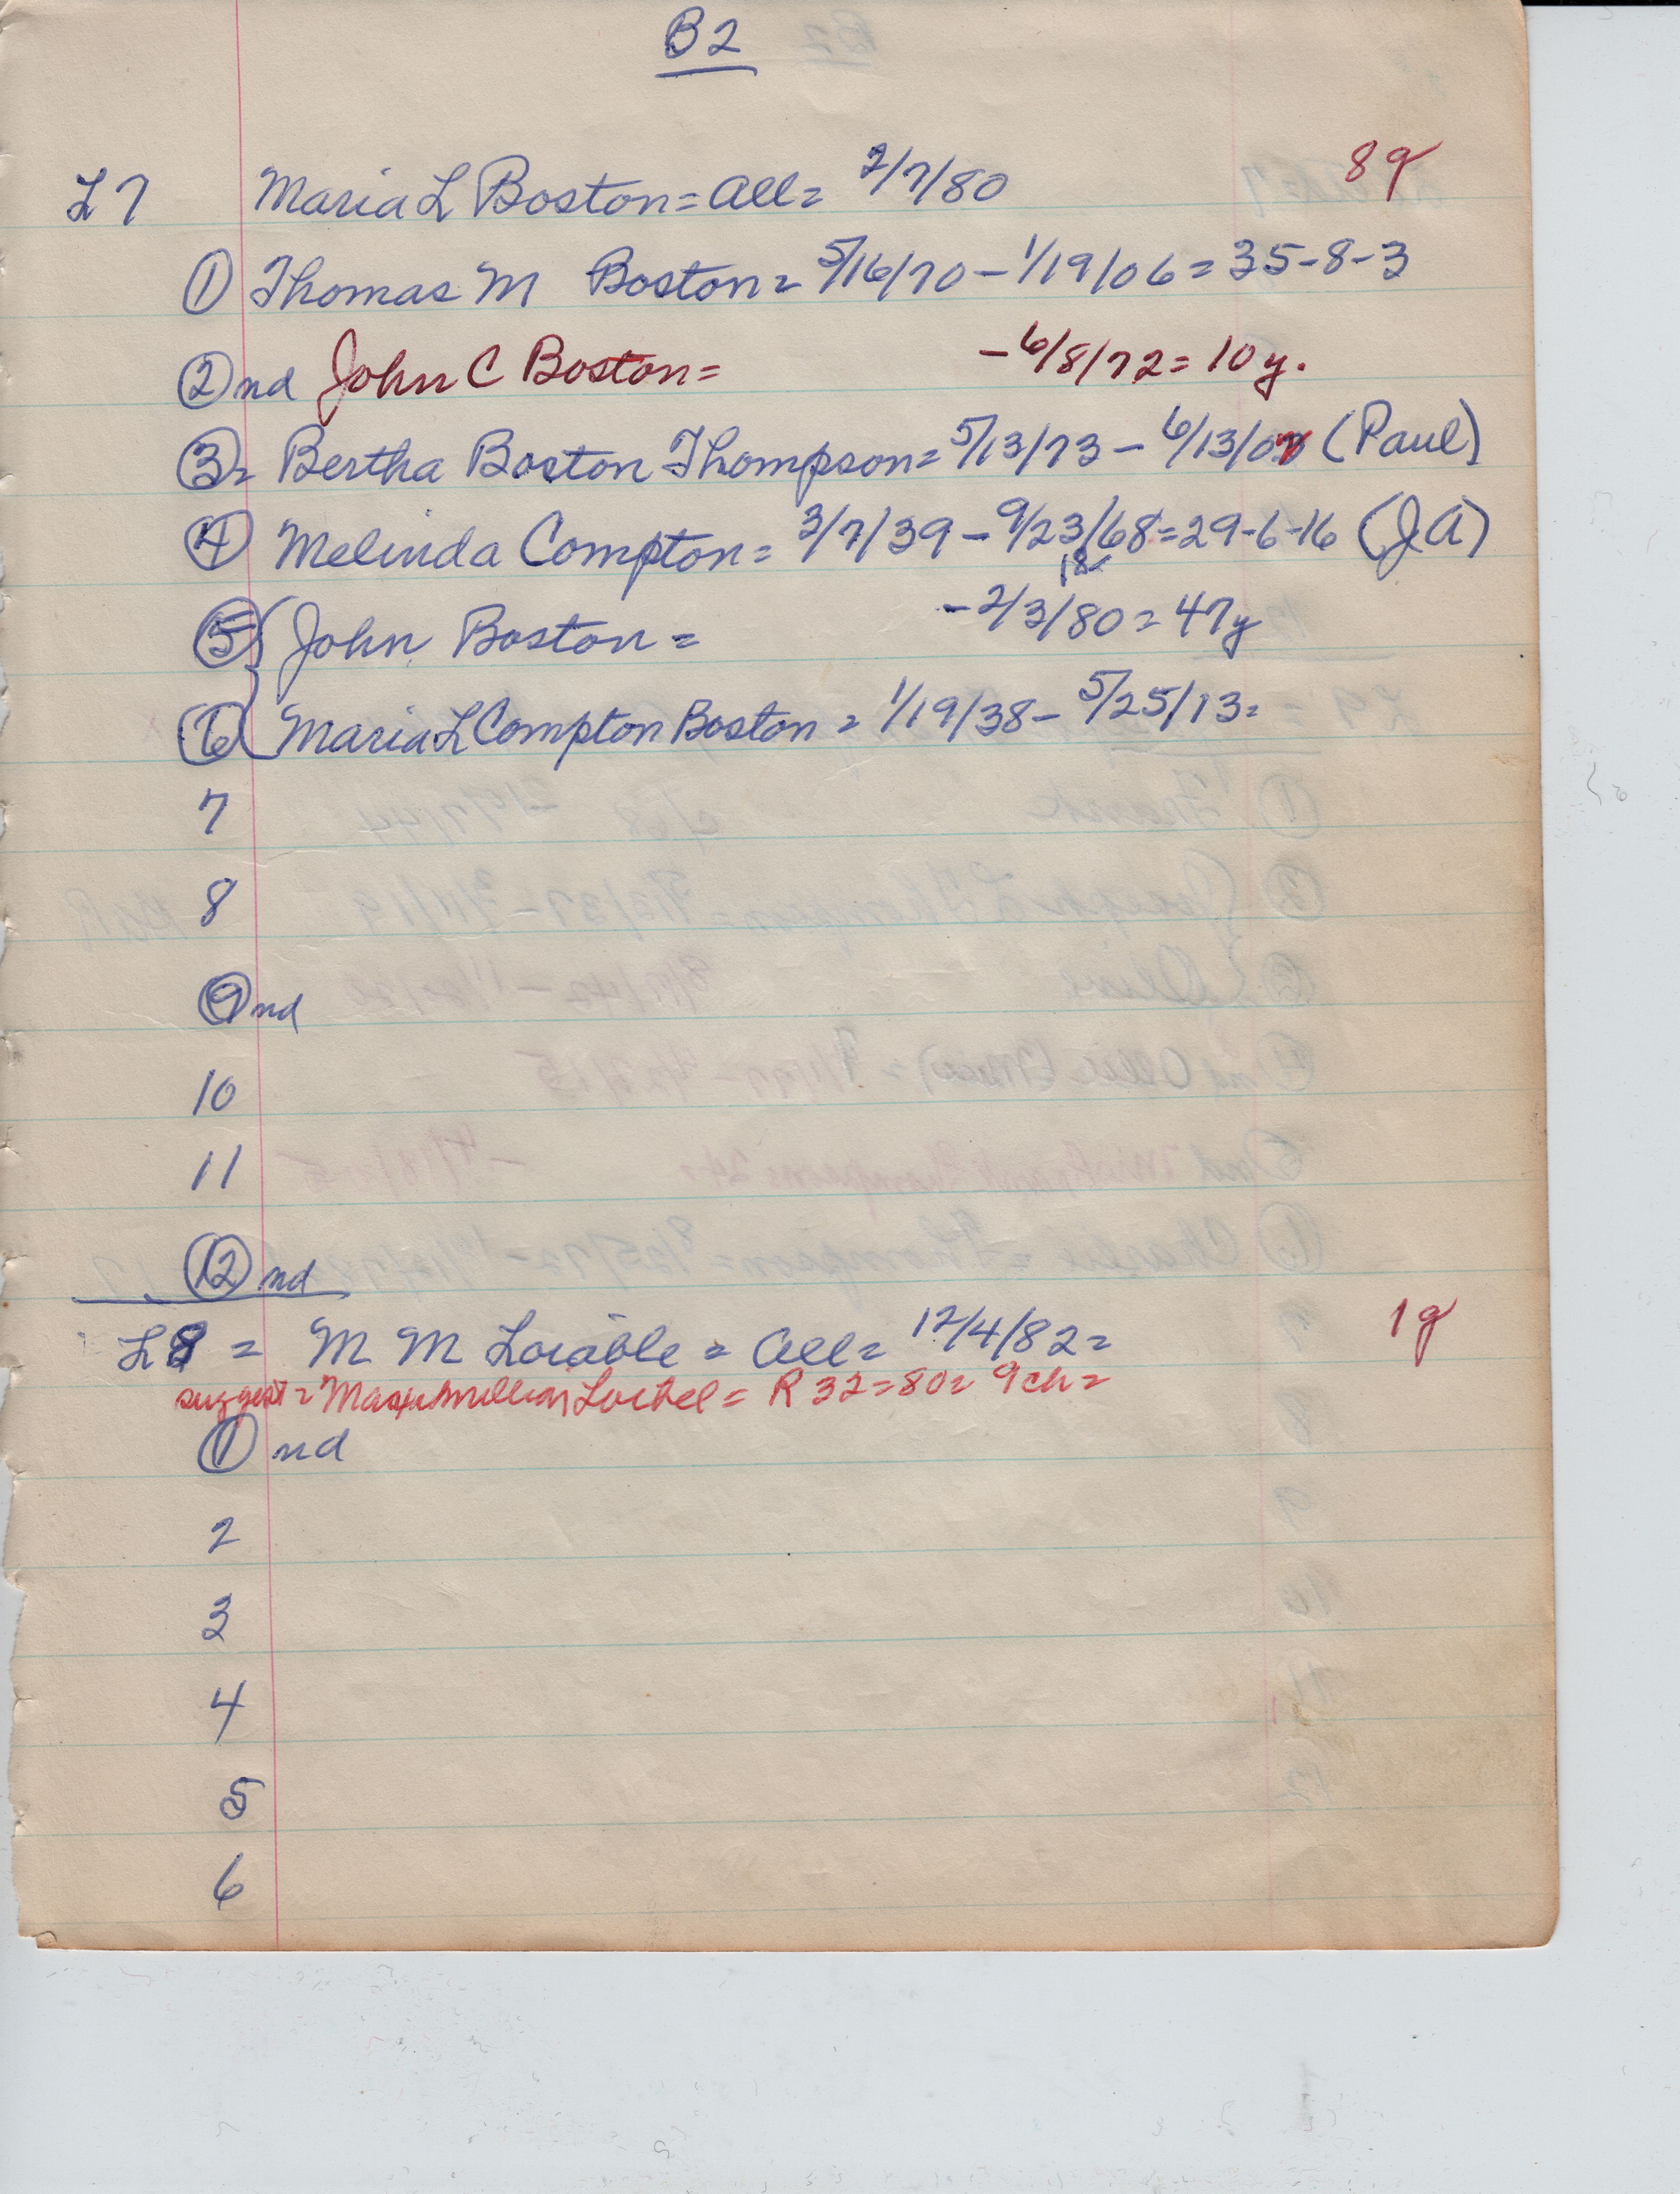 B2
L7 Maria L Boston = all = 2/7/80 8g
① Thomas M Boston = 5/16/70 – 1/19/06 = 35-8-3
② nd John C Boston = – 6/8/72 = 10 y.
③ = Bertha Boston Thompson = 5/13/73 – 6/13/07 (Paul)
④ Melinda Compton = 3/7/39 – 9/23/68 = 29-6-16 (JA)
18
⑤ John Boston = – 2/3/80 = 47y
⑥ Maria L Compton Boston = 1/19/38 – 5/25/13 =
7
8
⑨ nd
10
11
⑫ nd
L8 = M M Loiable = all = 12/4/82 = 1g
suggest = Maximillian Loibel = R 32 = 80 = 9 ch =
① nd
2
3
4
5
6